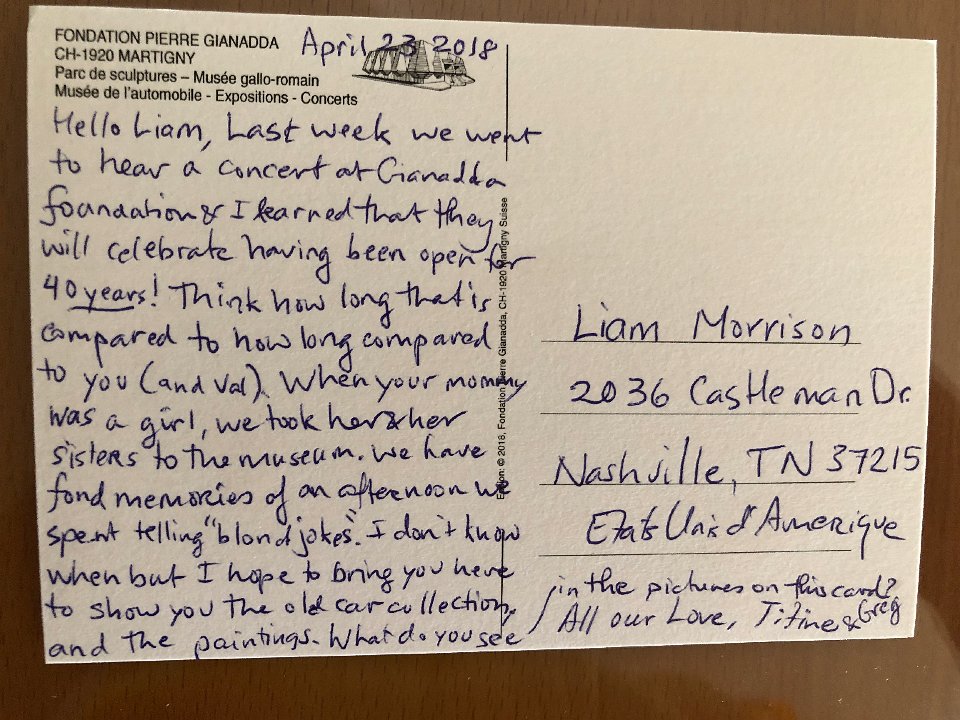 FONDATION PIERRE GIANADDA
CH-1920 MARTIGNY
Parc de sculptures – Musée gallo-romain
Musée de l'automobile - Expositions - Concerts
April 23 2018
Hello Liam, Last week we went
to hear a concert at Gianadda
foundation & I learned that they
will celebrate having been open for
40 years! Think how long that is
compared to how long compared
to you (and Val). When your mommy
was a girl, we took her & her
sisters to the museum. We have
fond memories of an afternoon we
spent telling "blond jokes". I don't know
when but I hope to bring you here
to show you the old car collection,
and the paintings. What do you see
in the pictures on this card?
All our Love, Titine & Greg
Edition: © 2018, Fondation Pierre Gianadda, CH-1920 Martigny Suisse
Liam Morrison
2036 Castleman Dr.
Nashville, TN 37215
Etats Unis d'Amerique